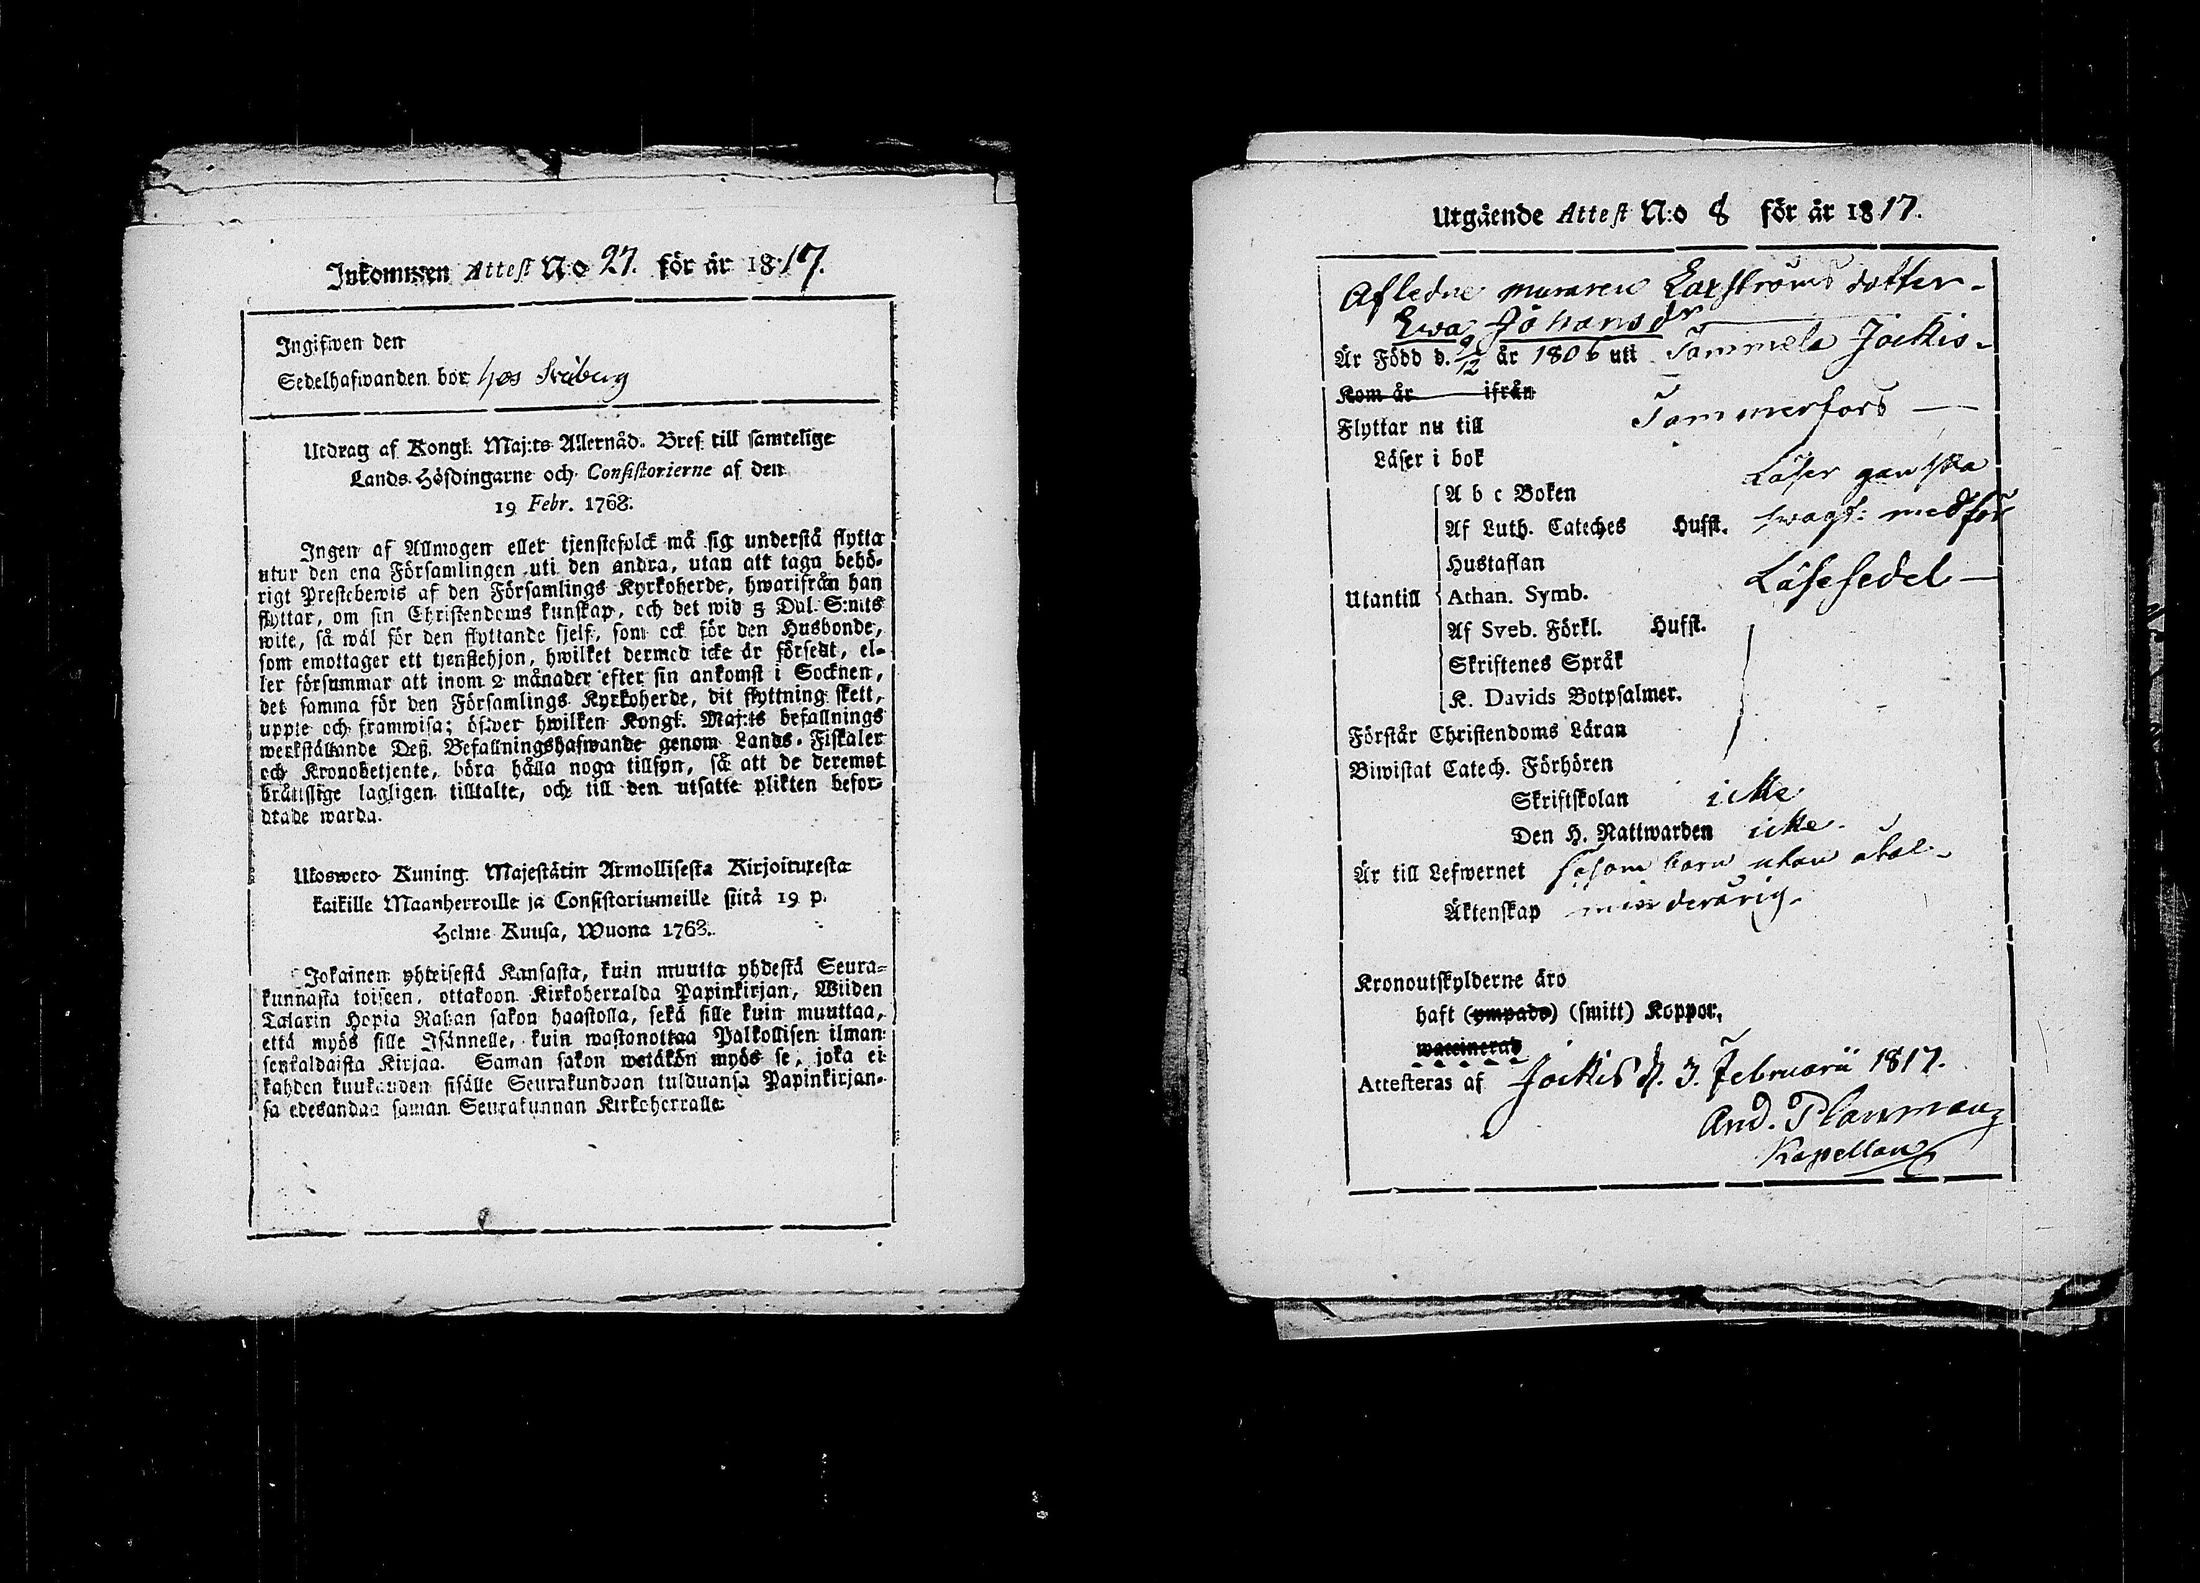 Inkommen Attest N:o 27. för år 1817.
Ingifwen den
Sedelhafwanden bor hos
Utdrag af Kongl. Maj:ts Allernåd. Bref till samtelige
Lands-Höfdingarne och Consistorierne af den
19 Febr. 1768.
Ingen af Allmogen eller tjenstefolck må sig understå flytta
utur den ena Församlingen uti den andra, utan att taga behö-
rigt Prestebewis af den Församlings Kyrkoherde, hwarifrån han
flyttar, om sin Christendoms kunskap, och det wid 5 Dal. S:mts
wite, så wäl för den flyttande sjelf, som ock för den Husbonde,
som emottager ett tjenstehjon, hwilket dermed icke är försedt, el-
ler försummar att inom 2 månader efter sin ankomst i Socknen,
det samma för den Församlings Kyrkoherde, dit flyttning skett,
uppte och framwisa; öfwer hwilken Kongl. Maj:ts befallnings
werkställande Deß Befallningshafwande genom Lands-Fiskaler
och Kronobetjente, böra hålla noga tillsyn, så att de deremot
bråttslige lagligen tilltalte, och till den utsatte plikten befor-
drade warda.
Ulosweto Kuning. Majestätin Armollisesta Kirjoituxesta
kaikille Maanherroille ja Consistoriumeille siitä 19 p.
Helme Kuusa, Wuona 1768.
Jokainen yhteisestä Kansasta, kuin muutta yhdestä Seura-
kunnasta toiseen, ottakoon Kirkoherralda Papinkirjan, Wiiden
Talarin Hopia Rahan sakon haastolla, sekä sille kuin muuttaa,
että myös sille Isännelle, kuin wastanottaa Palkollisen ilman
senkaldaista Kirjaa. Saman sakon wetäkön myös se, joka ei
kahden kuukauden sisälle Seurakundaan tulduansa Papinkirjan-
sa edesandaa saman Seurakunnan Kirkoherralle.
Utgående Attest N:o 8 för år 1817.
Afledne muraren Laxströms dotter
Ewa Johansdr
Är Född d. 9/12 år 1806 uti Tammela Jockis
Kom år ifrån
Flyttar nu till Tammerfors
Läser i bok Läser ganska
A b c Boken
Af Luth. Cateches Husft. swagt: medför
Hustaflan
Utantill Athan. Symb. Läsesedel
Af Sveb. Förkl. Husft.
Skriftenes Språk
K. Davids Botpsalmer.
Förstår Christendoms Läran
Biwistat Catech. Förhören
Skriftskolan icke
Den H. Nattwarden icke
Är till Lefwernet såsom barn utan åtal
Äktenskap minderårig
Kronoutskylderne äro
haft (ympade) (smitt) Koppor,
waccinerad
Attesteras af Jockis d. 3. Februarii 1817.
And. Planman
Kapellan